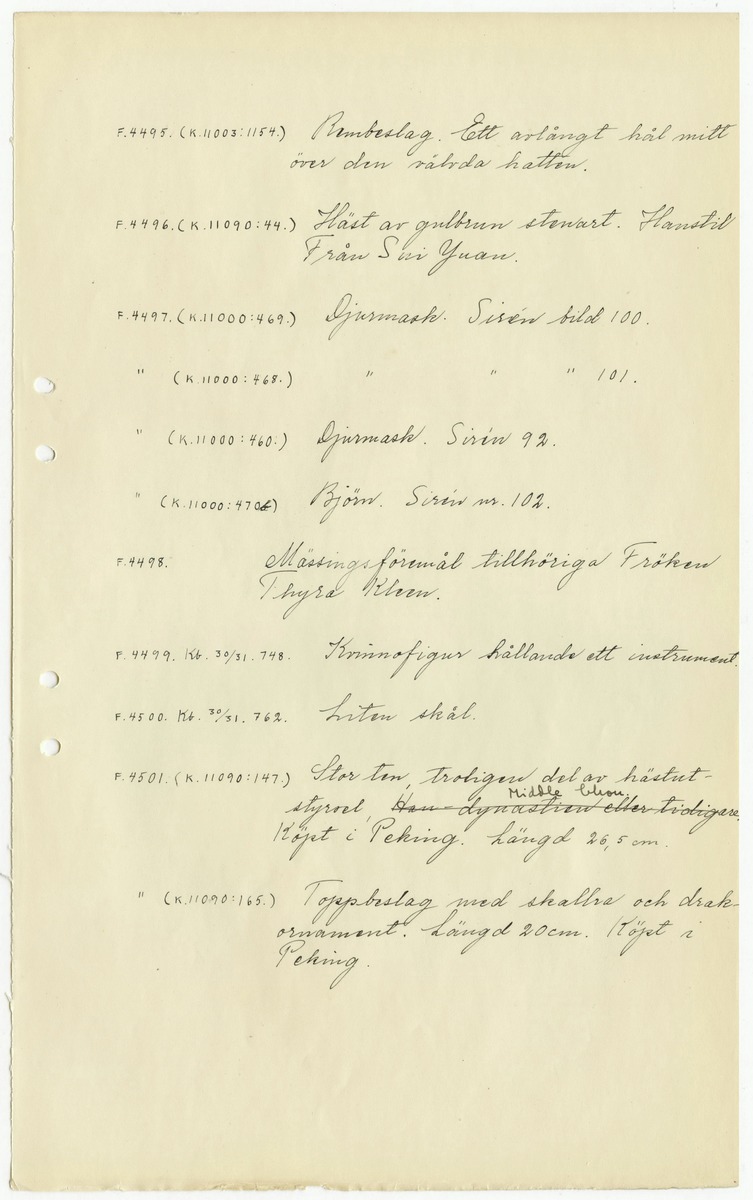 F.4495. (K.11003:1154.) Rembeslag. Ett avlångt hål mitt
över den välvda hatten.
F.4496. (K.11090:44.) Häst av gulbrun stenart. Hanstil
Från Sui Yuan.
F.4497. (K.11000:469.) Djurmask. Sirén bild 100.
" (K.11000:468.) " " " 101.
" (K.11000:460.) Djurmask. Sirén 92.
" (K.11000:470) Björn. Sirén nr. 102.
F.4498. Mässingsföremål tillhöriga Fröken
Thyra Kleen.
F.4499. Kb. 30/31. 748. Kvinnofigur hållande ett instrument.
F.4500. Kb. 30/31. 762. Liten skål.
F.4501. (K.11090:147.) Stor ten, troligen del av hästut-
Middle Chou.
styrsel, Han-dynastien eller tidigare.
Köpt i Peking. Längd 26,5 cm.
" (K.11090:165.) Toppbeslag med skallra och drak-
ornament. Längd 20cm. Köpt i
Peking.